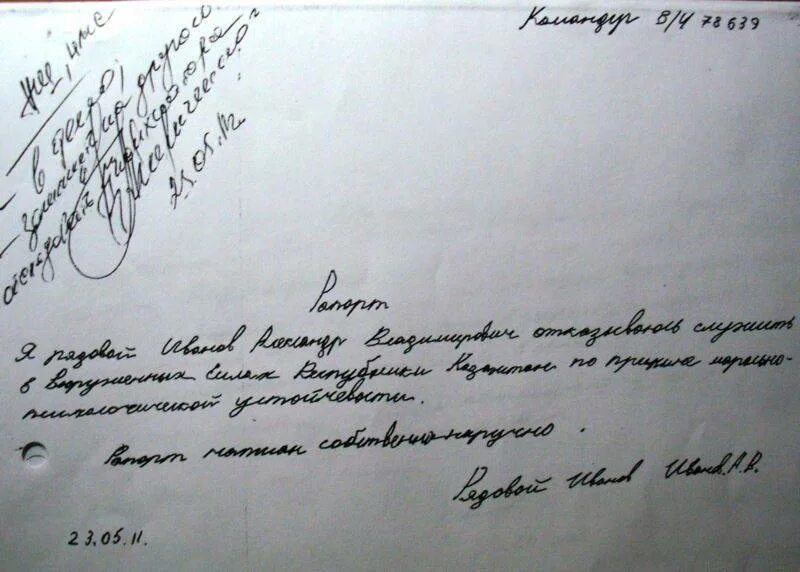 Командир В/Ч 78639
в дело,
на другого
25.05.11г.
Рапорт
Я рядовой Иванов Александр Владимирович отказываюсь служить
в Вооруженных Силах Республики Казахстан по причине морально-
психологической устойчевости.
Рапорт написан собственно-наручно.
Рядовой Иванов Иванов.А.В.
23.05.11.